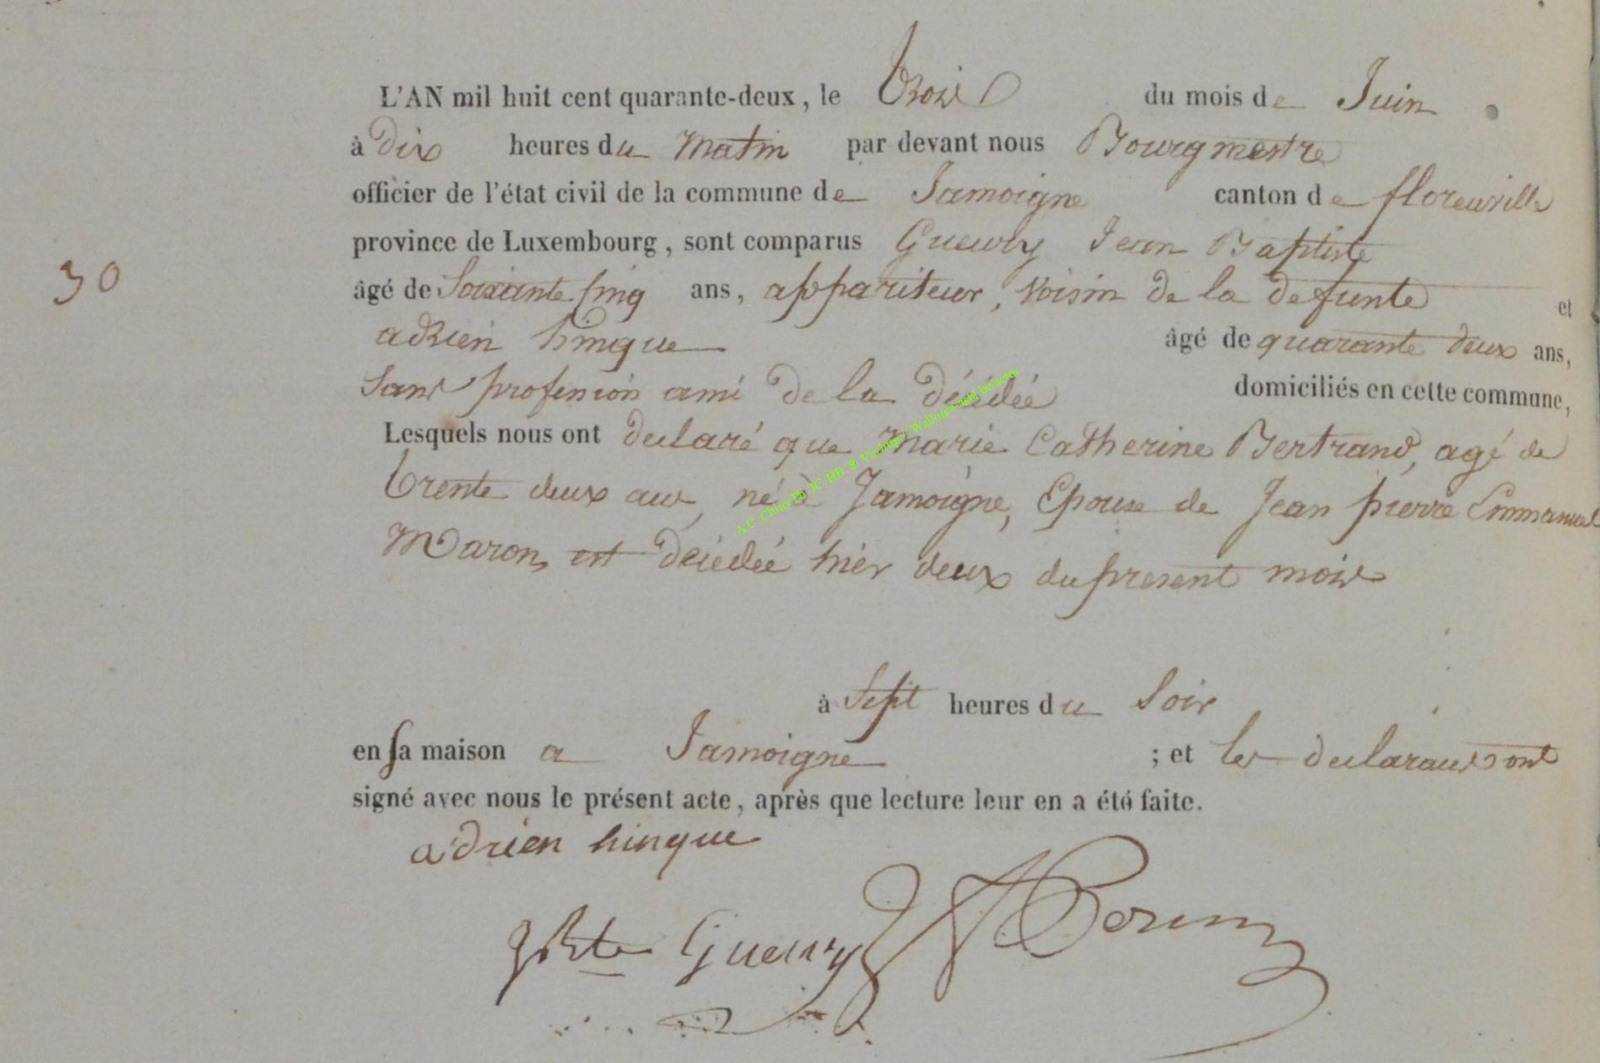 L'AN mil huit cent quarante-deux, le trois du mois de Juin
à dix heures du matin par devant nous Bourgmestre
officier de l'état civil de la commune de Jamoigne canton de florenville
province de Luxembourg, sont comparus Guewry Jean Baptiste
30
âgé de Soixante cinq ans, appariteur, voisin de la defunte et
adrien hinque âgé de quarante deux ans,
Sans profession ami de la décédée domiciliés en cette commune,
Lesquels nous ont declaré que Marie Catherine Bertrand, agé de
trente deux ans, né à Jamoigne, Epouse de Jean pierre Emmanuel
Maron, est décédée hier deux du present mois
à Sept heures du Soir
en sa maison a Jamoigne ; et les declarans ont
signé avec nous le présent acte, après que lecture leur en a été faite.
adrien hinque
JBte Guewry